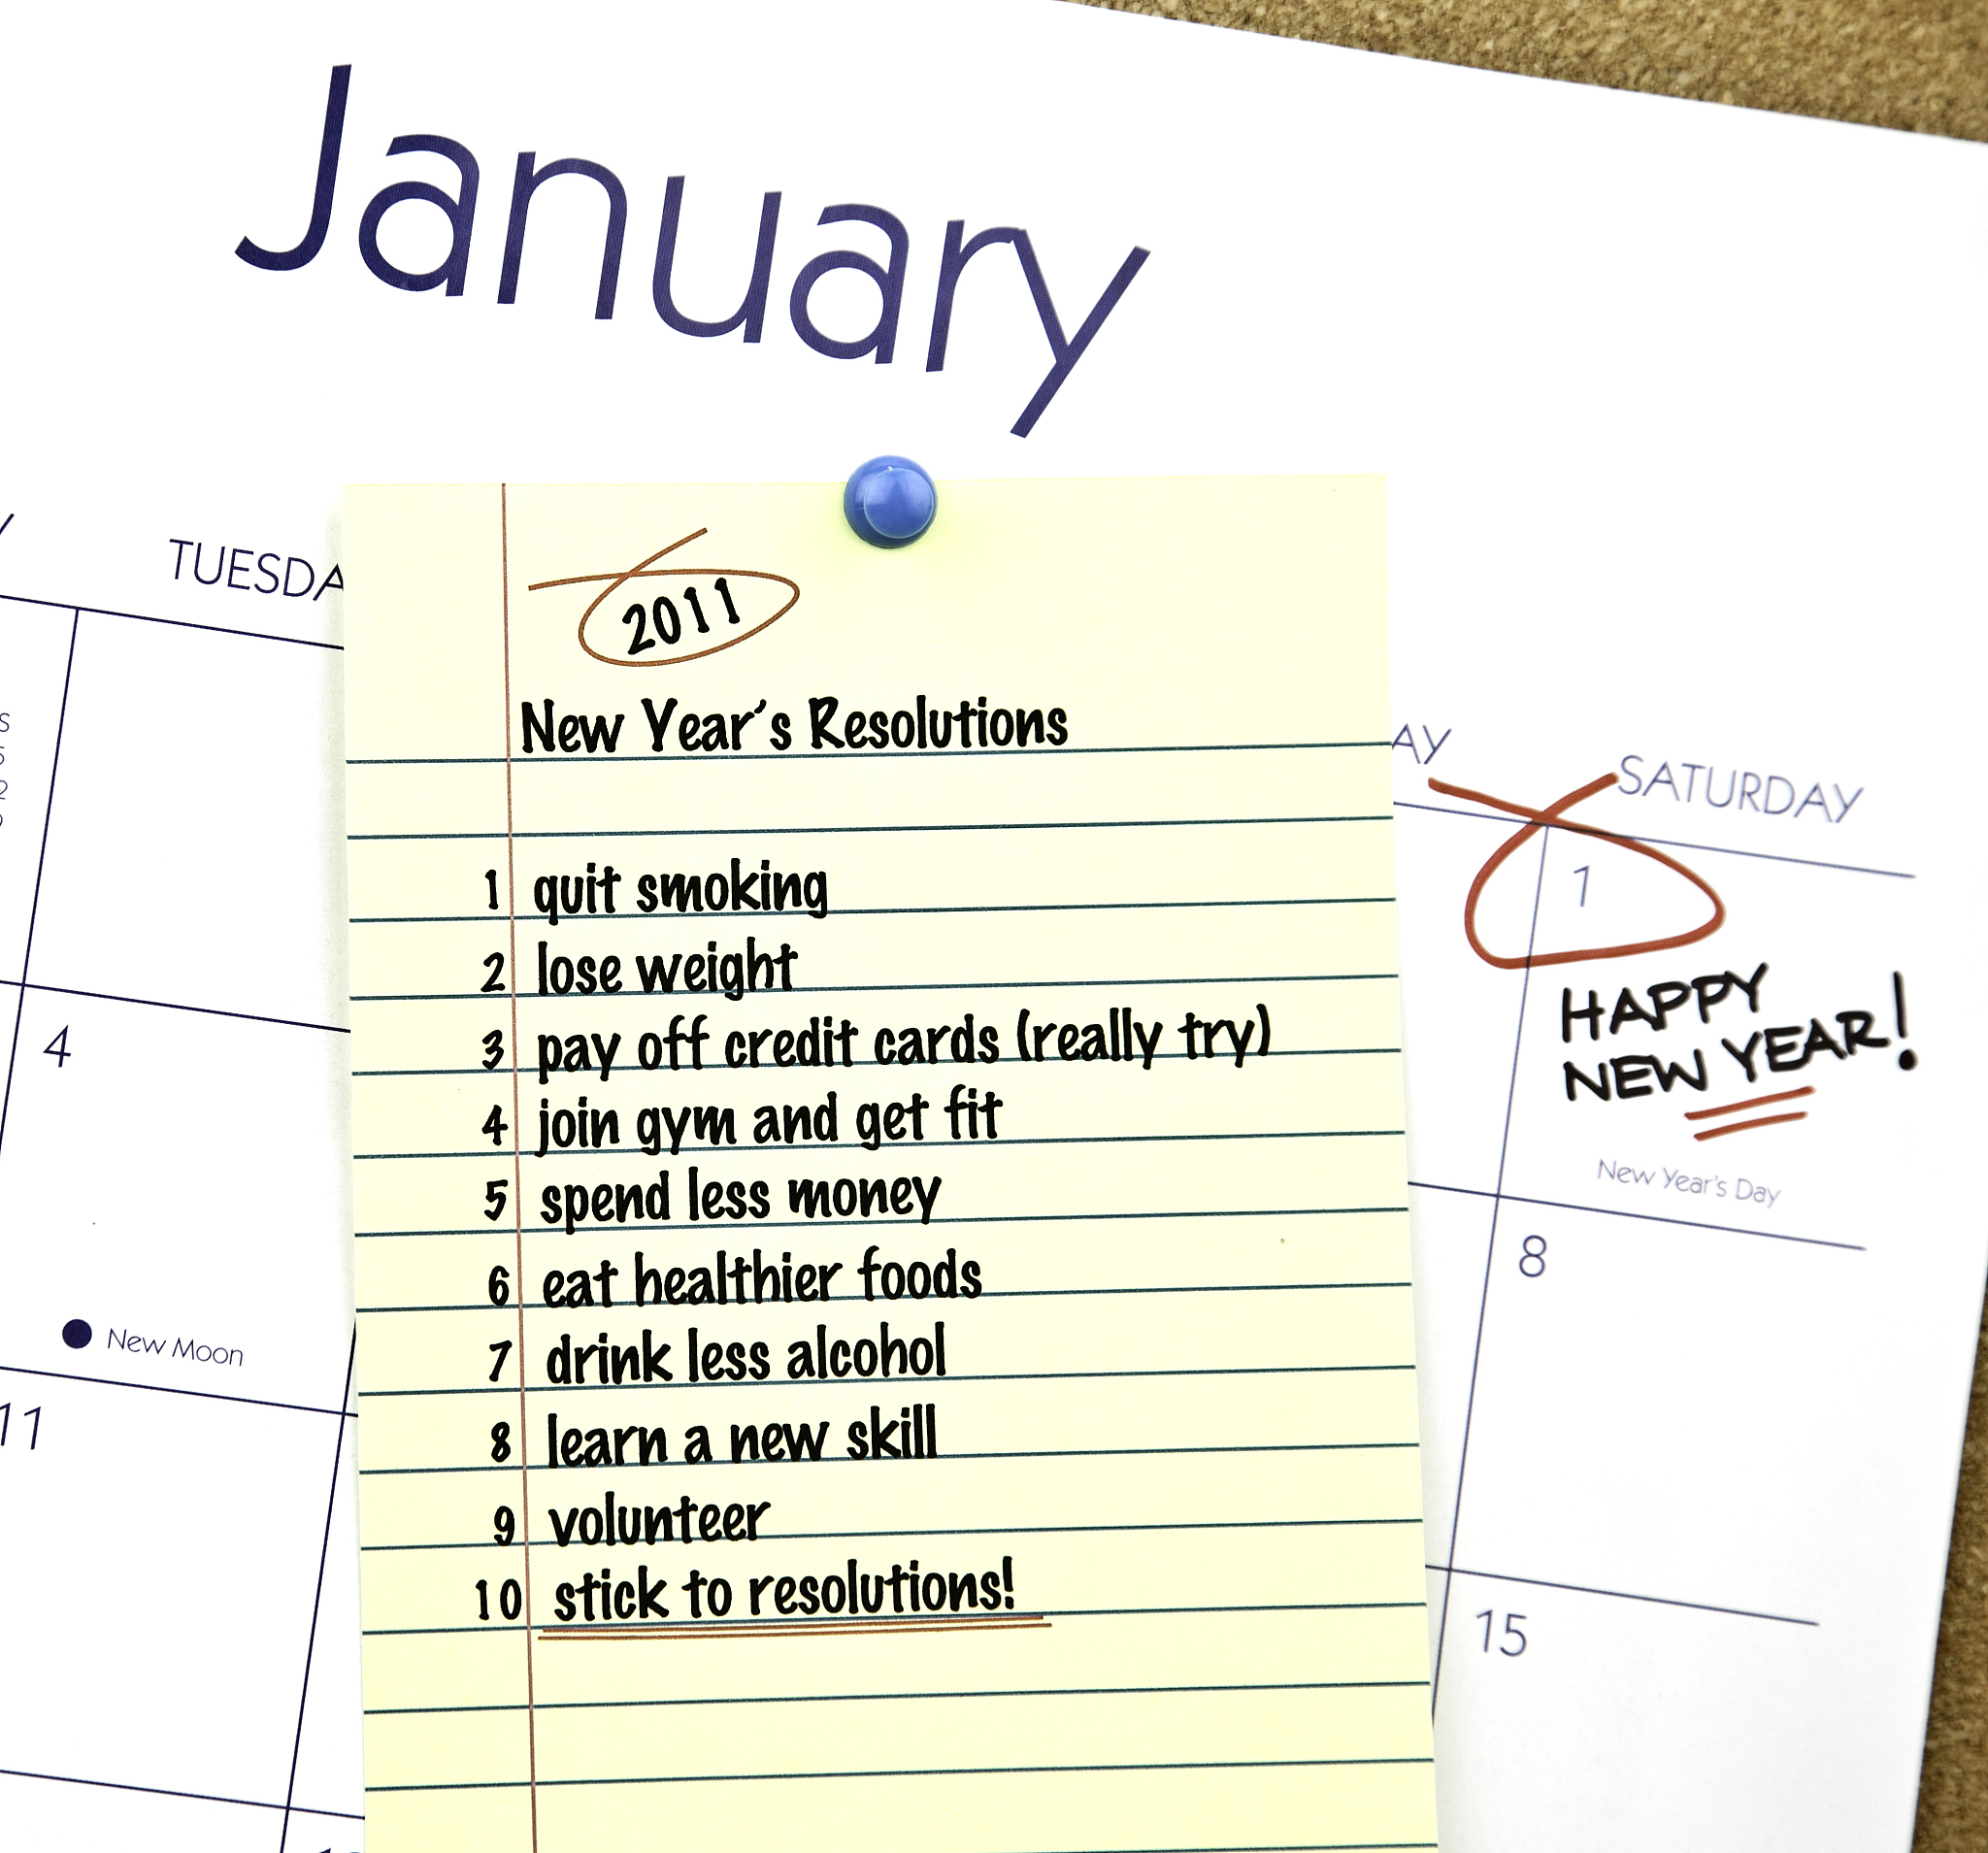 January
TUESDA
AY
SATURDAY
2011
New Year's Resolutions
1 quit smoking
2 lose weight
3 pay off credit cards (really try)
4 join gym and get fit
5 spend less money
6 eat healthier foods
7 drink less alcohol
8 learn a new skill
9 volunteer
10 stick to resolutions!
1
HAPPY
NEW YEAR!
New Year's Day
4
New Moon
8
11
15